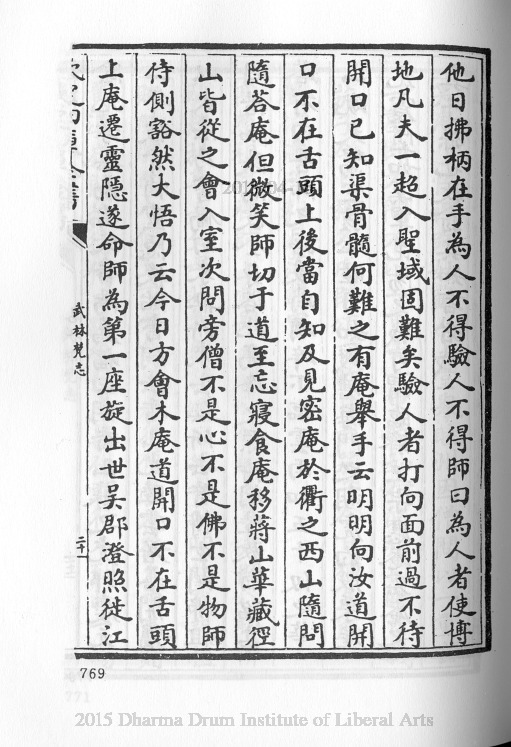 他日拂柄在手為人不得驗人不得師曰為人者使博
地凡夫一超入聖域固難矣驗人者打向面前過不待
開口已知渠骨髓何難之有庵舉手云明明向汝道開
口不在舌頭上後當自知及見密庵於衢之西山隨問
隨答庵但微笑師切于道至忘寢食庵移蔣山華藏徑
山皆從之會入室次問旁僧不是心不是佛不是物師
侍側豁然大悟乃云今日方會木庵道開口不在舌頭
上庵遷靈隱遂命師為第一座旋出世吳郡澄照徙江
武林梵志
二十一
769
2015 Dharma Drum Institute of Liberal Arts